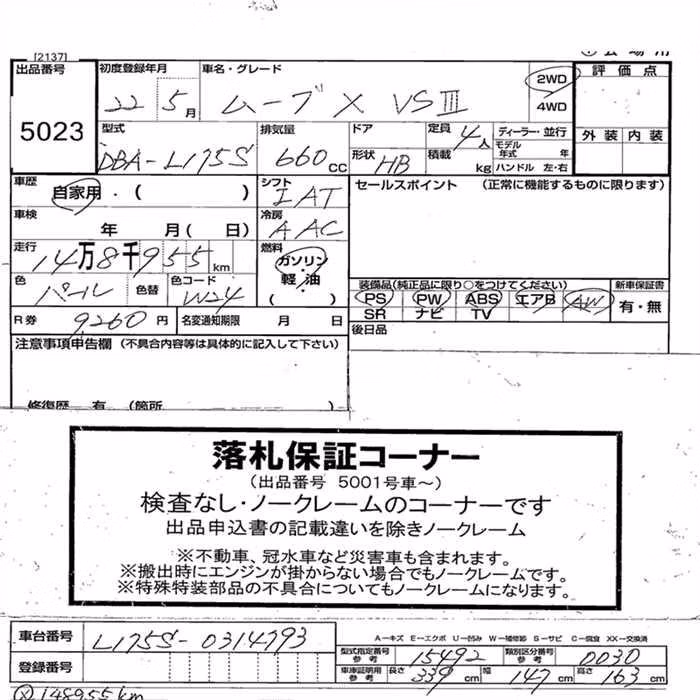 [2137]
出品番号
5023
初度登録年月
22 5月
車名・グレード
ムーブX VSⅢ
2WD
4WD
評価点
型式
DBA-L175S
排気量
660CC
ドア
形状 HB
定員 4人
積載 kg
ディーラー・並行
モデル年式 年
ハンドル 左・右
外装 内装
車歴
自家用・( )
シフト
IAT
セールスポイント (正常に機能するものに限ります)
車検
年 月(日)
冷房
AAC
走行
14万8千955km
燃料
ガソリン・軽油・( )
色
パール
色替
色コード
W24
装備品(純正品に限り○をつけてください)
PS PW ABS エアB AW
SR ナビ TV
新車保証書
有・無
R券 9260円
名変通知期限 月 日
後日品
注意事項申告欄 (不具合内容等は具体的に記入して下さい)
修復歴 有 (箇所
落札保証コーナー
(出品番号 5001号車~)
検査なし・ノークレームのコーナーです
出品申込書の記載違いを除きノークレーム
※不動車、冠水車など災害車も含まれます。
※搬出時にエンジンが掛からない場合でもノークレームです。
※特殊特装部品の不具合についてもノークレームになります。
車台番号
L175S-0314793
A-キズ E-エクボ U-凹み W-補修跡 S-サビ C-腐食 XX-交換済
型式指定番号 参考 15492
類別区分番号 参考 0030
登録番号
車庫証明用 参考 長さ 339cm 幅 147cm 高さ 163cm
148955km